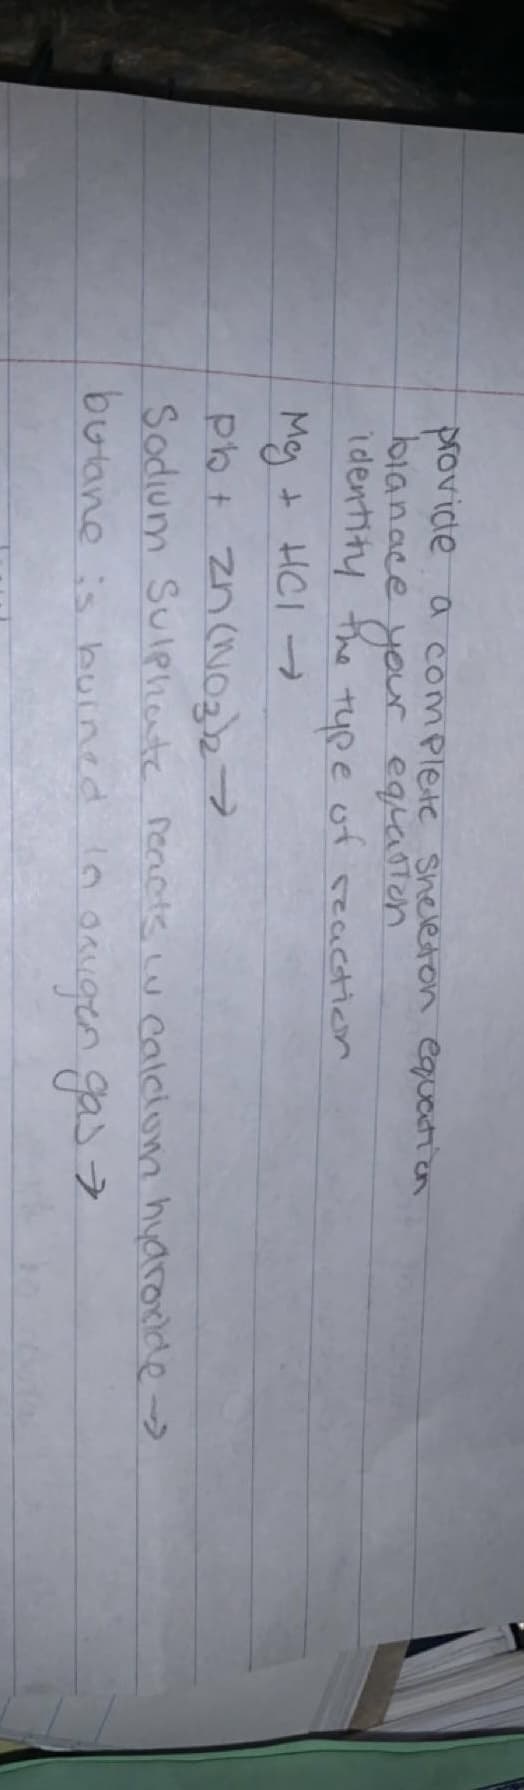 provide a complete skeleton equation
blanace your equation
identity the type of reaction
Mg + HCl →
Pb + Zn(NO3)2 →
Sodium Sulphate reacts w calcium hydroxide →
butane is burned in oxygen gas →